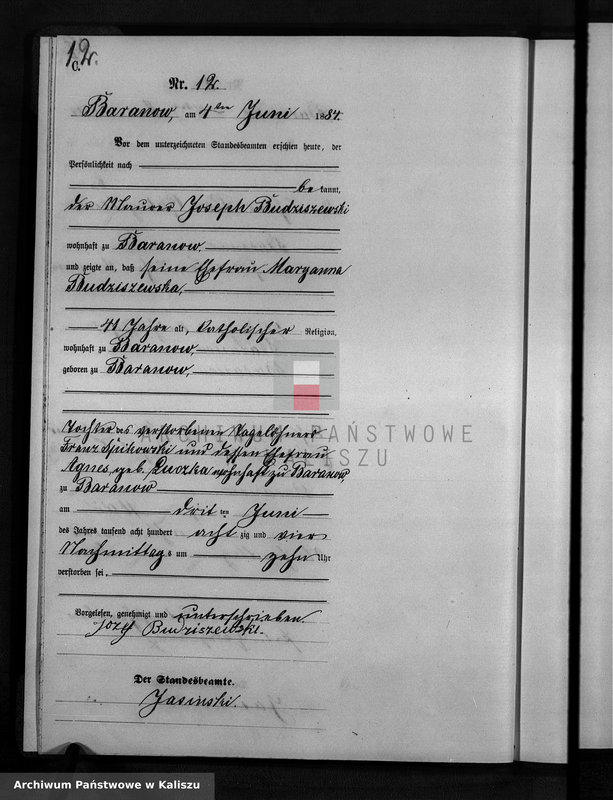 12.
C.
Nr. 12.
Baranow, am 4ten Juni 1884.
Vor dem unterzeichneten Standesbeamten erschien heute, der
Persönlichkeit nach
be kannt,
der Maurer Joseph Budziszewski
wohnhaft zu Baranow,
und zeigte an, daß seine Ehefrau Maryanna
Budziszewska,
41 Jahre alt, katholischer Religion,
wohnhaft zu Baranow,
geboren zu Baranow,
Tochter des verstorbenen Tagelöhners
Franz und dessen Ehefrau
Agnes, geb. wohnhaft zu Baranow,
zu Baranow
am drit ten Juni
des Jahres tausend acht hundert acht zig und vier
Nachmittag s um zehn Uhr
verstorben sei.
Vorgelesen, genehmigt und unterschrieben
Jozef Budziszewski.
Der Standesbeamte.
Jasinski.
ARCHIWUM PAŃSTWOWE
W KALISZU
Archiwum Państwowe w Kaliszu